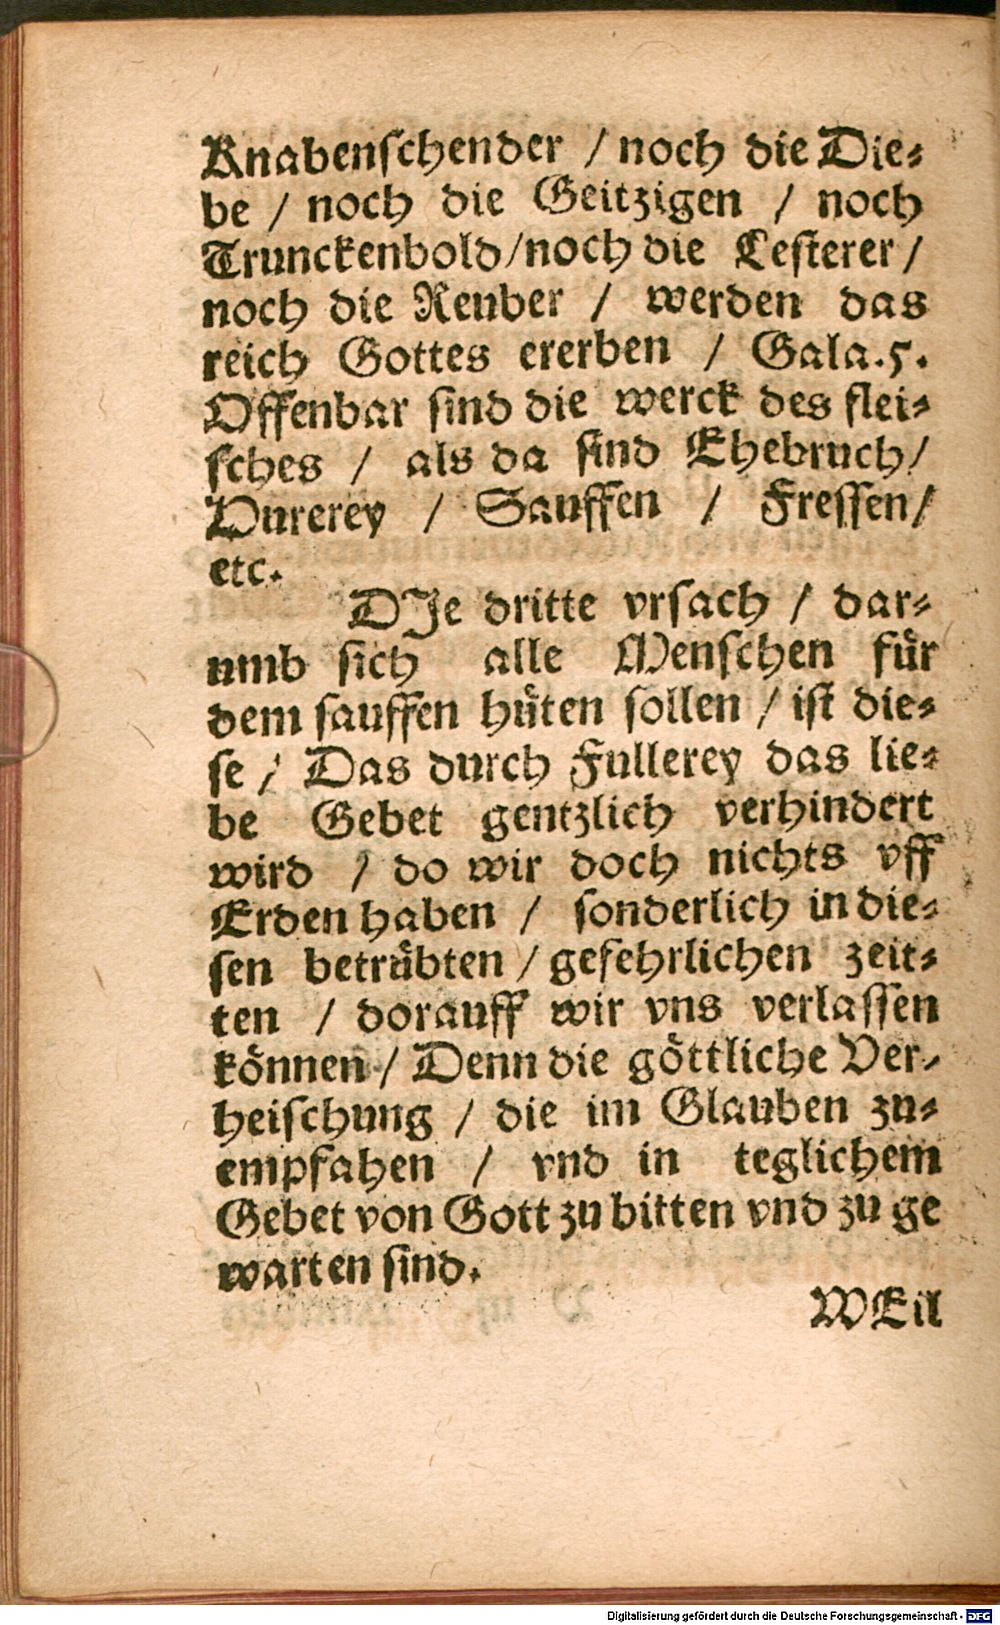 Knabenschender / noch die Die-
be / noch die Geitzigen / noch
Trunckenbold/noch die Lesterer /
noch die Reuber / werden das
reich Gottes ererben / Gala.5.
Offenbar sind die werck des flei-
sches / als da sind Ehebruch/
Hurerey / Sauffen / Fressen/
etc.
DJe dritte vrsach / dar-
umb sich alle Menschen fuͤr
dem sauffen huͤten sollen / ist die-
se / Das durch Fullerey das lie-
be Gebet gentzlich verhindert
wird / do wir doch nichts vff
Erden haben / sonderlich in die-
sen betruͤbten / gefehrlichen zeit-
ten / dorauff wir vns verlassen
koͤnnen / Denn die goͤttliche Ver-
heischung / die im Glauben zu-
empfahen / vnd in teglichem
Gebet von Gott zu bitten vnd zu ge
warten sind.
WEil
Digitalisierung gefördert durch die Deutsche Forschungsgemeinschaft - DFG